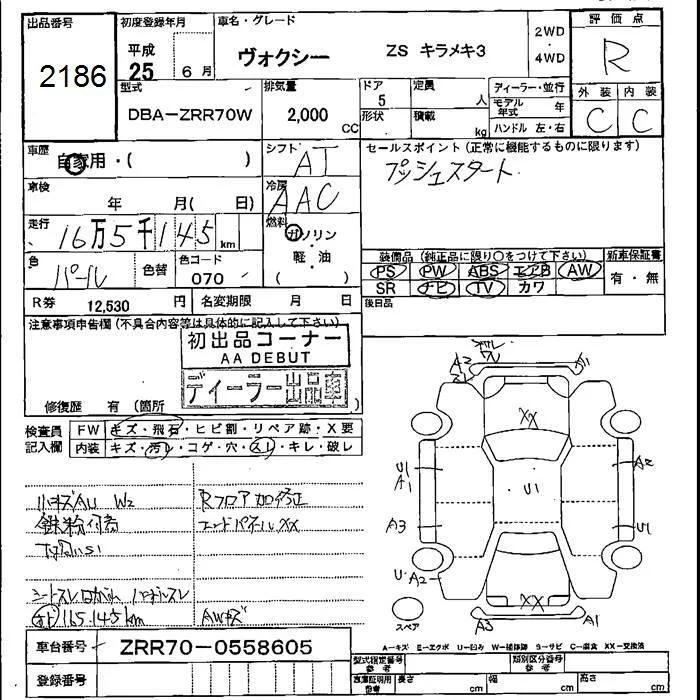 出品番号
2186
初度登録年月
平成
25 6 月
車名・グレード
ヴォクシー ZS キラメキ3
2WD
・
4WD
評価点
R
外装 内装
C C
型式
DBA-ZRR70W
排気量
2,000
CC
ドア
5
形状
定員
人
積載
kg
ディーラー・並行
モデル年式 年
ハンドル 左・右
車歴
自家用・( )
シフト
AT
セールスポイント (正常に機能するものに限ります)
プッシュスタート
車検
年 月( 日)
冷房
AAC
走行
16万5千145 km
燃料
ガソリン
・
軽・油
( )
色
パール
色替
色コード
070
装備品 (純正品に限り○をつけて下さい)
PS PW ABS エアB AW
SR ナビ TV カワ
新車保証書
有・無
R券 12,530 円
名変期限 月 日
後日品
注意事項申告欄 (不具合内容等は具体的に記入して下さい)
初出品コーナー
AA DEBUT
ディーラー出品車
修復歴 有 (箇所
検査員
記入欄
FW キズ・飛石・ヒビ割・リペア跡・X要
内装 キズ・汚レ・コゲ・穴・スレ・キレ・破レ
小キズAU W2
鉄粉付着
Rフロア加修正
エンドパネルXX
165.145km
AWキズ
A2
A1
XX
U1
A1
U1
A2
A3
U1
U・A2
XX
A3
A1
スペア
A-キズ E-エクボ U-凹み W-補修跡 S-サビ C-腐食 XX-交換済
車台番号
ZRR70-0558605
登録番号
型式指定番号
参考
類別区分番号
参考
車庫証明用
参考
長さ
cm
幅
cm
高さ
cm